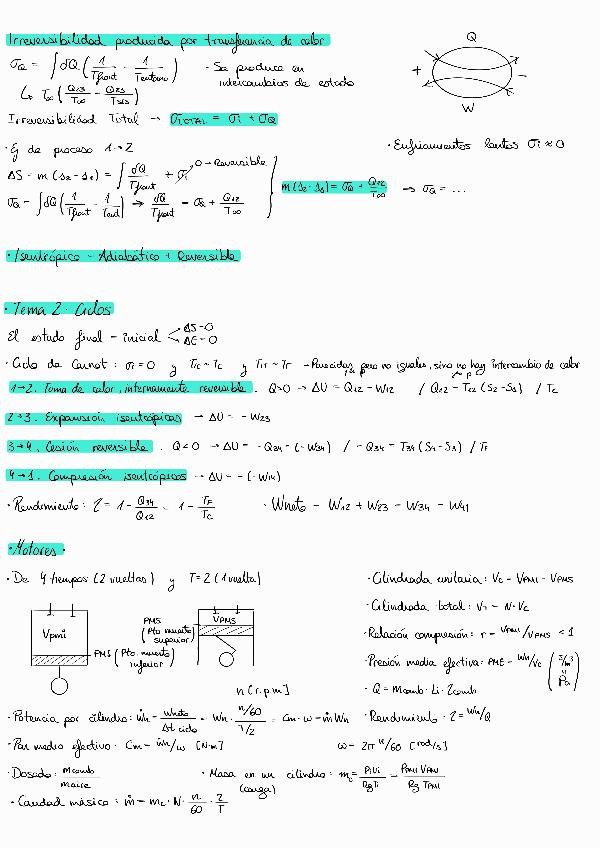 Irreversibilidad producida por transferencia de calor
σQ = ∫δQ (1/Tfront - 1/Tentorno) · Se produce en intercambios de estado
↳ T∞ (Q23/T∞ - Q23/T2s)
Q
+ -
W
Irreversibilidad Total → σTOTAL = σi + σQ
· Ej de proceso 1→2
· Enfriamientos lentos σi ≈ 0
ΔS = m (s2 - s1) = ∫ δQ/Tfront + σi 0 → Reversible
σQ = ∫δQ (1/Tfront - 1/Tent) → δQ/Tfront = σQ + Q12/T∞
m (s2 - s1) = σQ + Q12/T∞ ⇒ σQ = ...
· Isentrópico = Adiabático + Reversible
· Tema 2. Ciclos
El estado final = inicial ΔS=0 ΔE=0
· Ciclo de Carnot: σi = 0 y Tc ~ Tc y TF ~ TF → Parecidas pero no iguales, sino no hay intercambio de calor
1→2. Toma de calor, internamente reversible. Q>0 → ΔU = Q12 - W12 / Q12 = T12 (S2 - S1) / Tc
2→3. Expansión isentrópica → ΔU = -W23
3→4. Cesión reversible. Q<0 → ΔU = -Q34 - (-W34) / -Q34 = T34 (S4 - S3) / TF
4→1. Compresión isentrópica → ΔU = -(-W14)
· Rendimiento: η = 1 - Q34/Q12 = 1 - TF/TC · Wneto = W12 + W23 - W34 - W41
· Motores.
· De 4 tiempos (2 vueltas) y T=2 (1 vuelta)
· Cilindrada unitaria: Vc = VPMI - VPMS
· Cilindrada total: VT = N·Vc
· Relación compresión: r = VPMI/VPMS < 1
· Presión media efectiva: PME = Wn/Vc (J/m³ = Pa)
· Q = Mcomb · Li · ηcomb
Vpmi
PMI (Pto. muerto inferior)
PMS (Pto. muerto superior)
VPMS
n [r.p.m]
· Potencia por cilindro: Ẇn = Wneto/Δt ciclo = Wn · (n/60)/(T/2) = Cm · ω = ṁWn
· Rendimiento: η = Wn/Q
· Par medio efectivo: Cm = Ẇn/ω [N·m]
ω = 2π n/60 [rad/s]
· Dosado: mcomb/maire
· Masa en un cilindro: mc = PiVi/RgTi = PPMI VPMI/Rg TPMI
(carga)
· Caudal másico: ṁ = mc · N · n/60 · 2/T